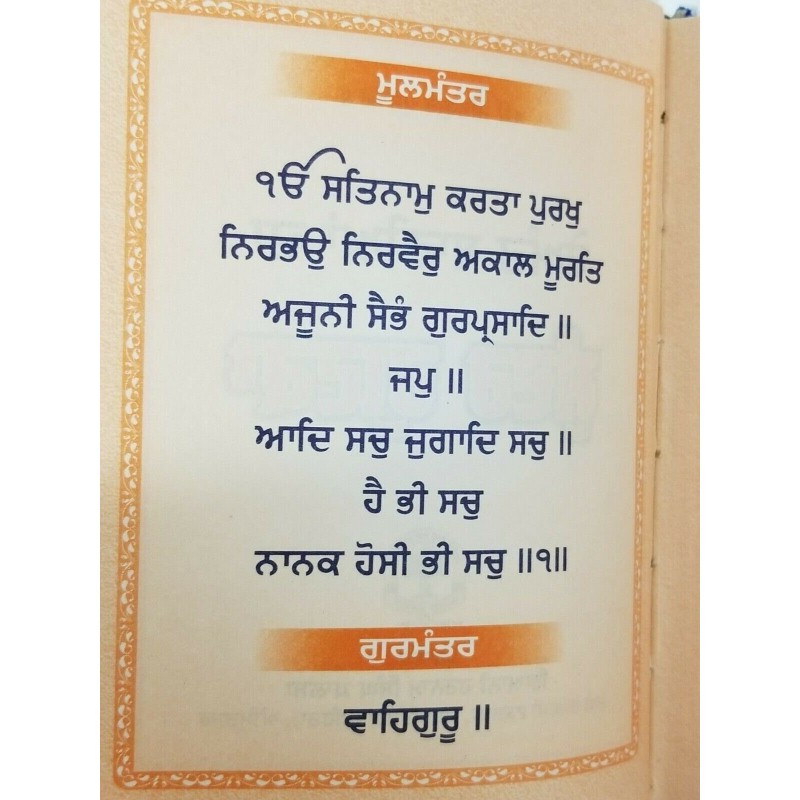 ਮੂਲਮੰਤਰ
ੴ ਸਤਿਨਾਮੁ ਕਰਤਾ ਪੁਰਖੁ
ਨਿਰਭਉ ਨਿਰਵੈਰੁ ਅਕਾਲ ਮੂਰਤਿ
ਅਜੂਨੀ ਸੈਭੰ ਗੁਰਪ੍ਰਸਾਦਿ ॥
ਜਪੁ ॥
ਆਦਿ ਸਚੁ ਜੁਗਾਦਿ ਸਚੁ ॥
ਹੈ ਭੀ ਸਚੁ
ਨਾਨਕ ਹੋਸੀ ਭੀ ਸਚੁ ॥੧॥
ਗੁਰਮੰਤਰ
ਵਾਹਿਗੁਰੂ ॥